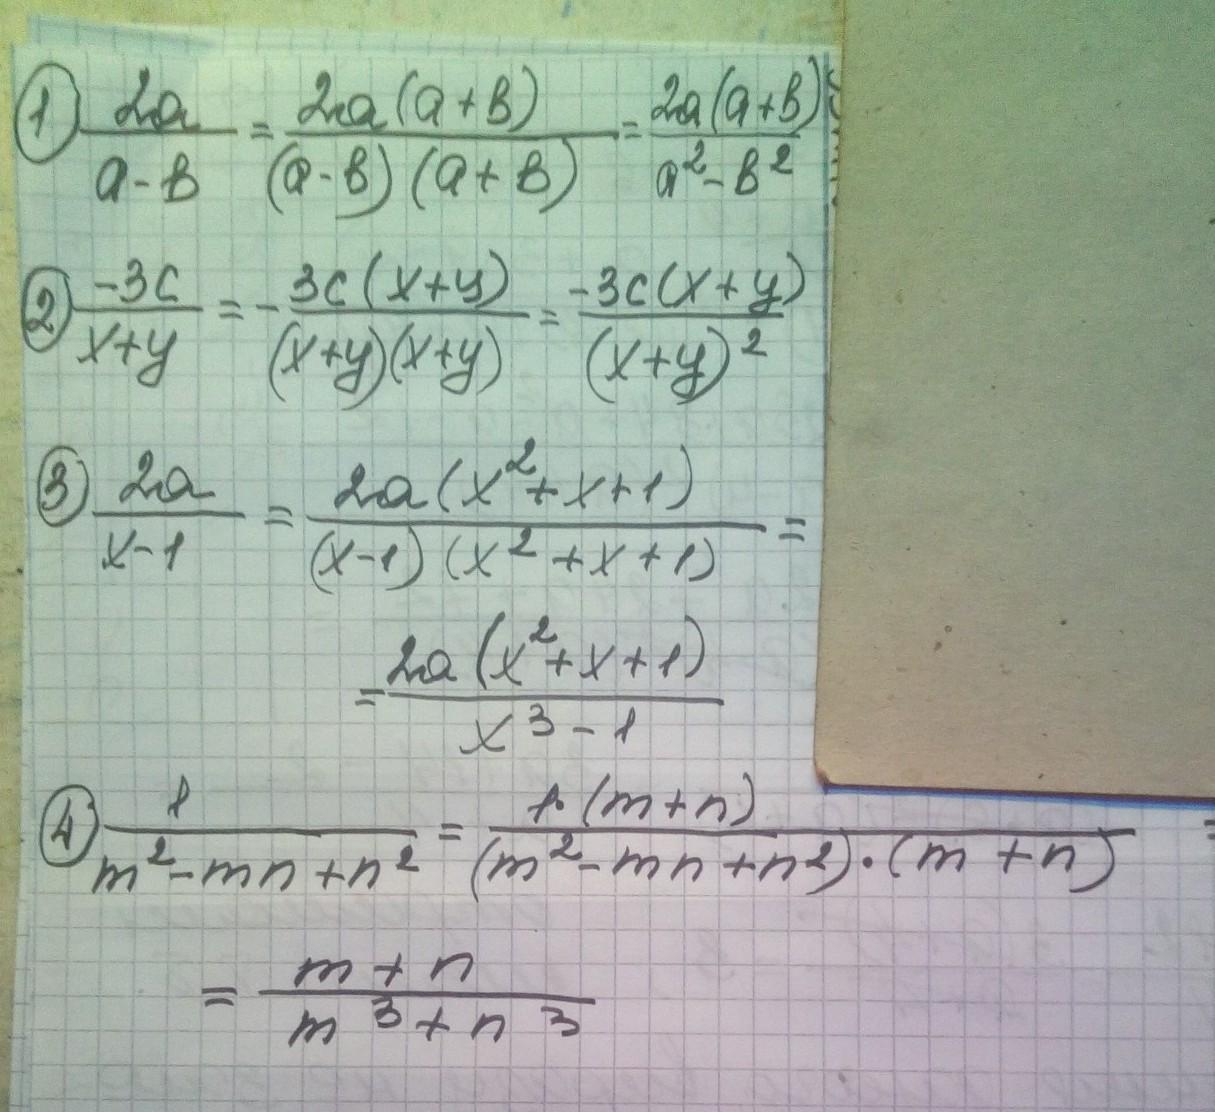 ① 2a/(a-b) = 2a(a+b)/((a-b)(a+b)) = 2a(a+b)/(a²-b²)
② -3c/(x+y) = -3c(x+y)/((x+y)(x+y)) = -3c(x+y)/(x+y)²
③ 2a/(x-1) = 2a(x²+x+1)/((x-1)(x²+x+1)) =
= 2a(x²+x+1)/(x³-1)
④ 1/(m²-mn+n²) = 1·(m+n)/((m²-mn+n²)·(m+n)) =
= (m+n)/(m³+n³)